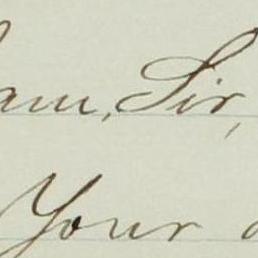 am, Sir,
Your